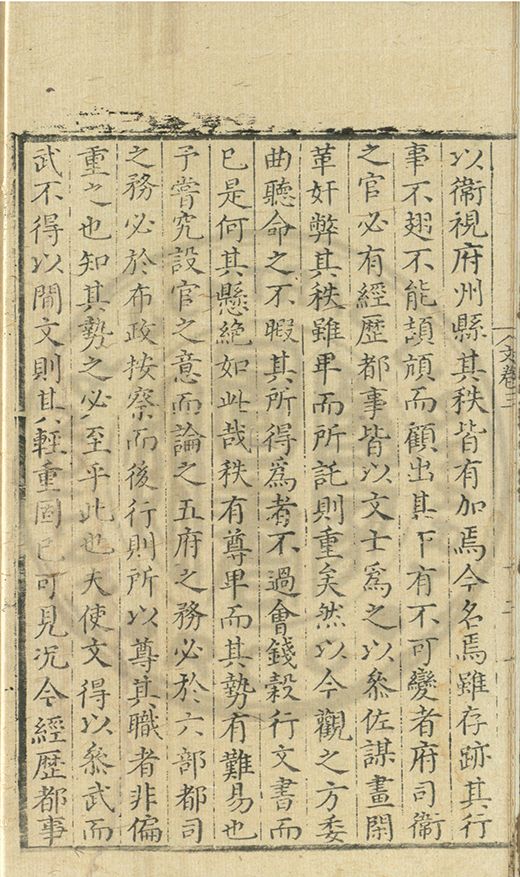 以衛視府州縣其秩皆有加焉今名焉雖存跡其行
事不翅不能頡頏而顧出其下有不可變者府司衛
之官必有經歷都事皆以文士爲之以叅佐謀畫閑
革奸弊其秩雖卑而所託則重矣然以今觀之方委
曲聽命之不暇其所得爲者不過會錢穀行文書而
已是何其懸絶如此哉秩有尊卑而其勢有難易也
予嘗究設官之意而論之五府之務必於六部都司
之務必於布政按察而後行則所以尊其職者非偏
重之也知其勢之必至乎此也夫使文得以叅武而
武不得以間文則其輕重固已可見况今經歷都事
文卷三